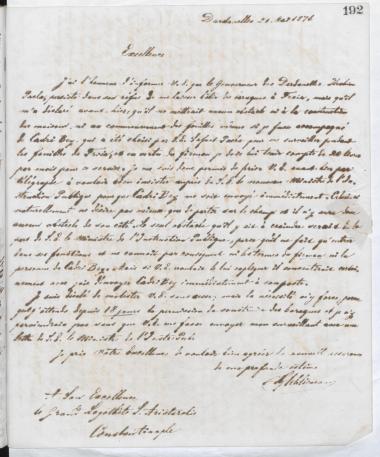 192
Dardanelles 21 Mai 1876
Excellence
J'ai l'honneur d'informer V. E. que le Gouverneur des Dardanelles, Ibrahim
Pacha, persiste dans son refus de me laisser bâtir des baraques à Troie, mais qu'il
m'a déclaré avant hier, qu'il ne mettrait aucun obstacle ni à la construction
des maisons, ni au commencement des fouilles même si je suis accompagné
de Cadri Bey, qui a été choisi par S. E. Safvet Pacha pour me surveiller pendant
les fouilles de Troie, et en vertu du firman je dois lui tenir compte de
par mois pour ce service. Je me suis donc permis de prier V. E. avant hier par
télégraphe à vouloir bien insister auprès de S. E. le nouveau Ministre de l'In-
struction Publique pour que Cadri Bey me soit envoyé immédiatement. Celui-ci
naturellement ne désire pas mieux que de partir sur le champ et il n'y aura donc
aucun obstacle de son côté. Le seul obstacle qu'il y ait à craindre serait de la
part de S. E. le Ministre de l'Instruction Publique, parce qu'il ne fait qu'entrer
dans ses fonctions et ne connait par conséquent ni les termes du firman ni la
personne de Cadri Bey. Mais si V. E. voulait le lui expliquer il consentirait certai-
nement à ce que j'envoye Cadri Bey immédiatement
Je suis désolé de molester V. E. sans cesse, mais la nécessité m'y force, puis-
que j'attends depuis 18 jours la permission de construire des baraques et je n'y
parviendrai pas sans que V. E. me fasse envoyer mon surveillant avec une
lettre de S. E. le Ministre de l'Instr. Publ.
Je prie Votre Excellence de vouloir bien agréer la nouvelle assurance
de ma profonde estime
Schliemann
A Son Excellence
le Grand Logothète S. Aristarchis
Constantinople